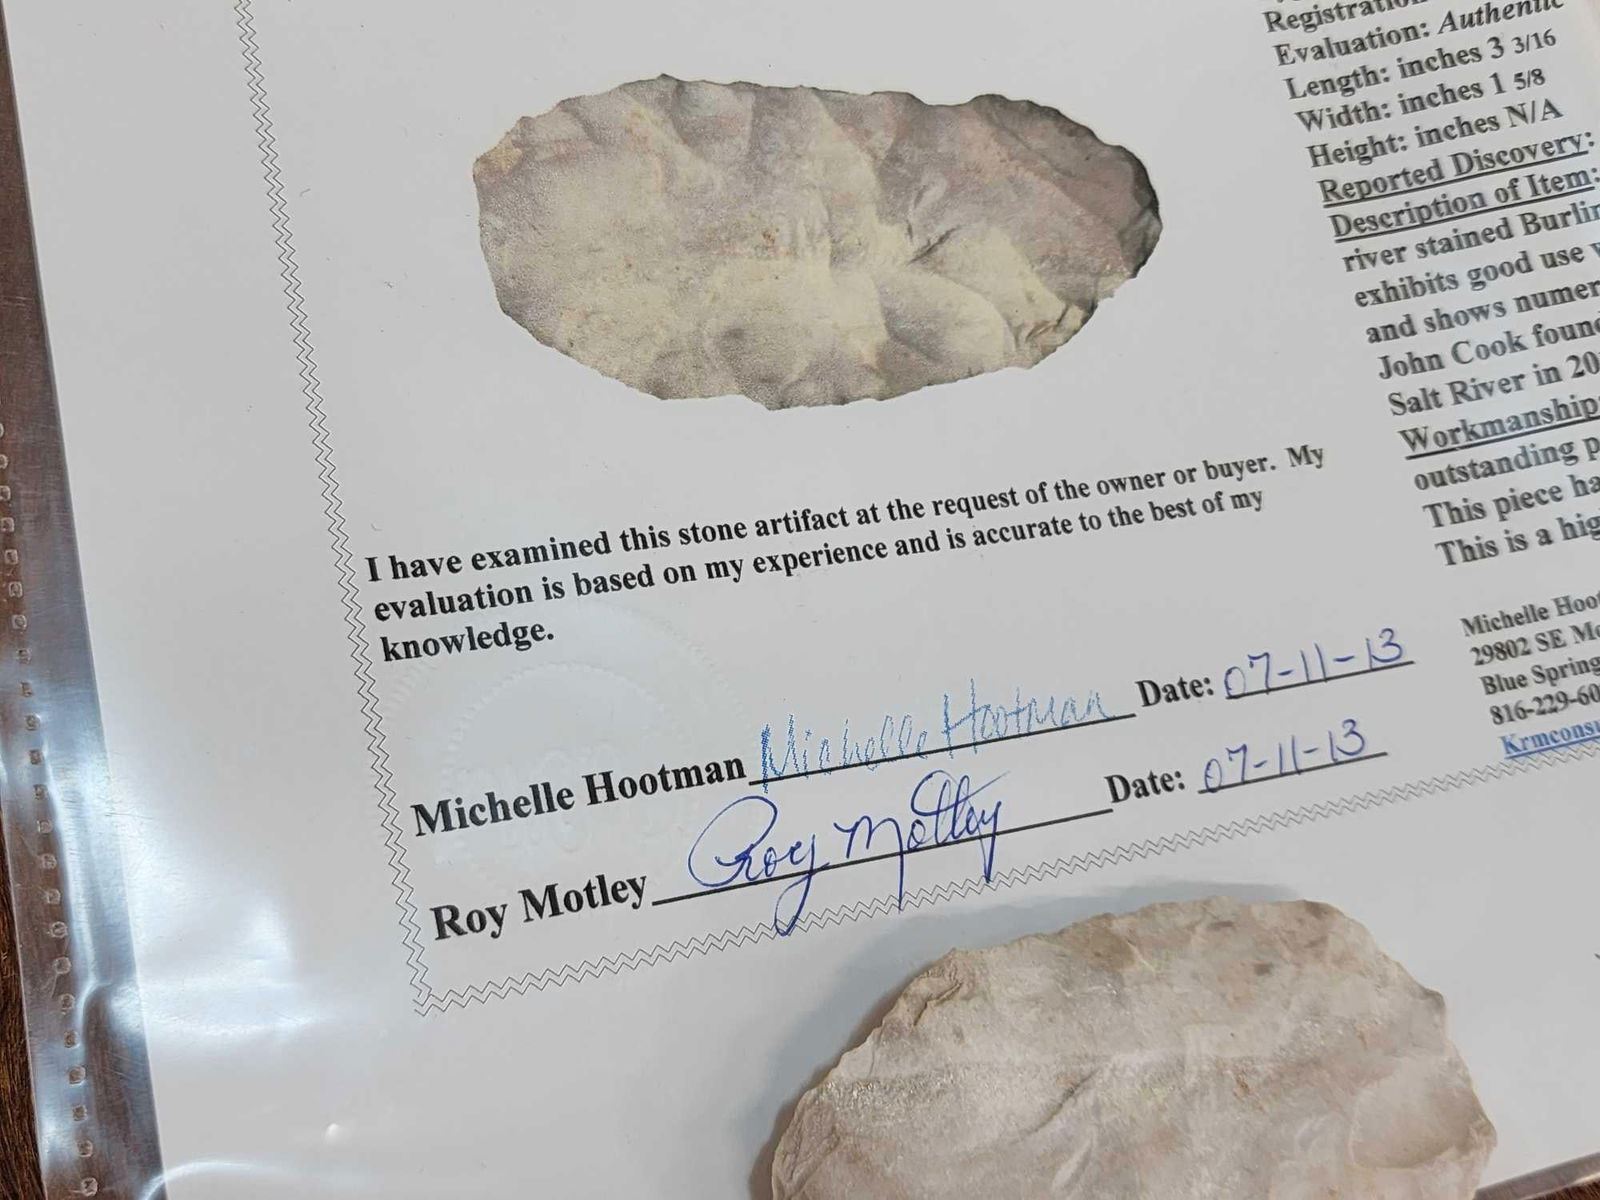 Evaluation: Authentic
Length: inches 3 3/16
Width: inches 1 5/8
Height: inches N/A
Reported Discovery:
Description of Item:
river stained
exhibits good use
and shows
John Cook found
Salt River in 20
Workmanship:
outstanding
This piece
This is a
I have examined this stone artifact at the request of the owner or buyer. My
evaluation is based on my experience and is accurate to the best of my
knowledge.
Michelle Hootman Michelle Hootman Date: 07-11-13
Roy Motley Roy Motley Date: 07-11-13
Michelle
29802 SE
Blue
816-229-60